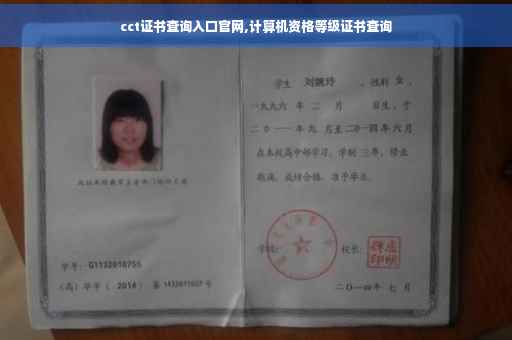 cct证书查询入口官网,计算机资格等级证书查询
学生 刘婉玲 ，性别 女 ，
一九九六 年 二 月 日生，于
二〇一一 年 九 月至 二〇一四 年 六 月
在本校高中部学习，学制 三 年，修业
期满，成绩合格，准予毕业。
学号：G1132010755
（高）毕字（ 2014 ）第 1432011007 号
学校：
校长：
二〇一四年 七 月